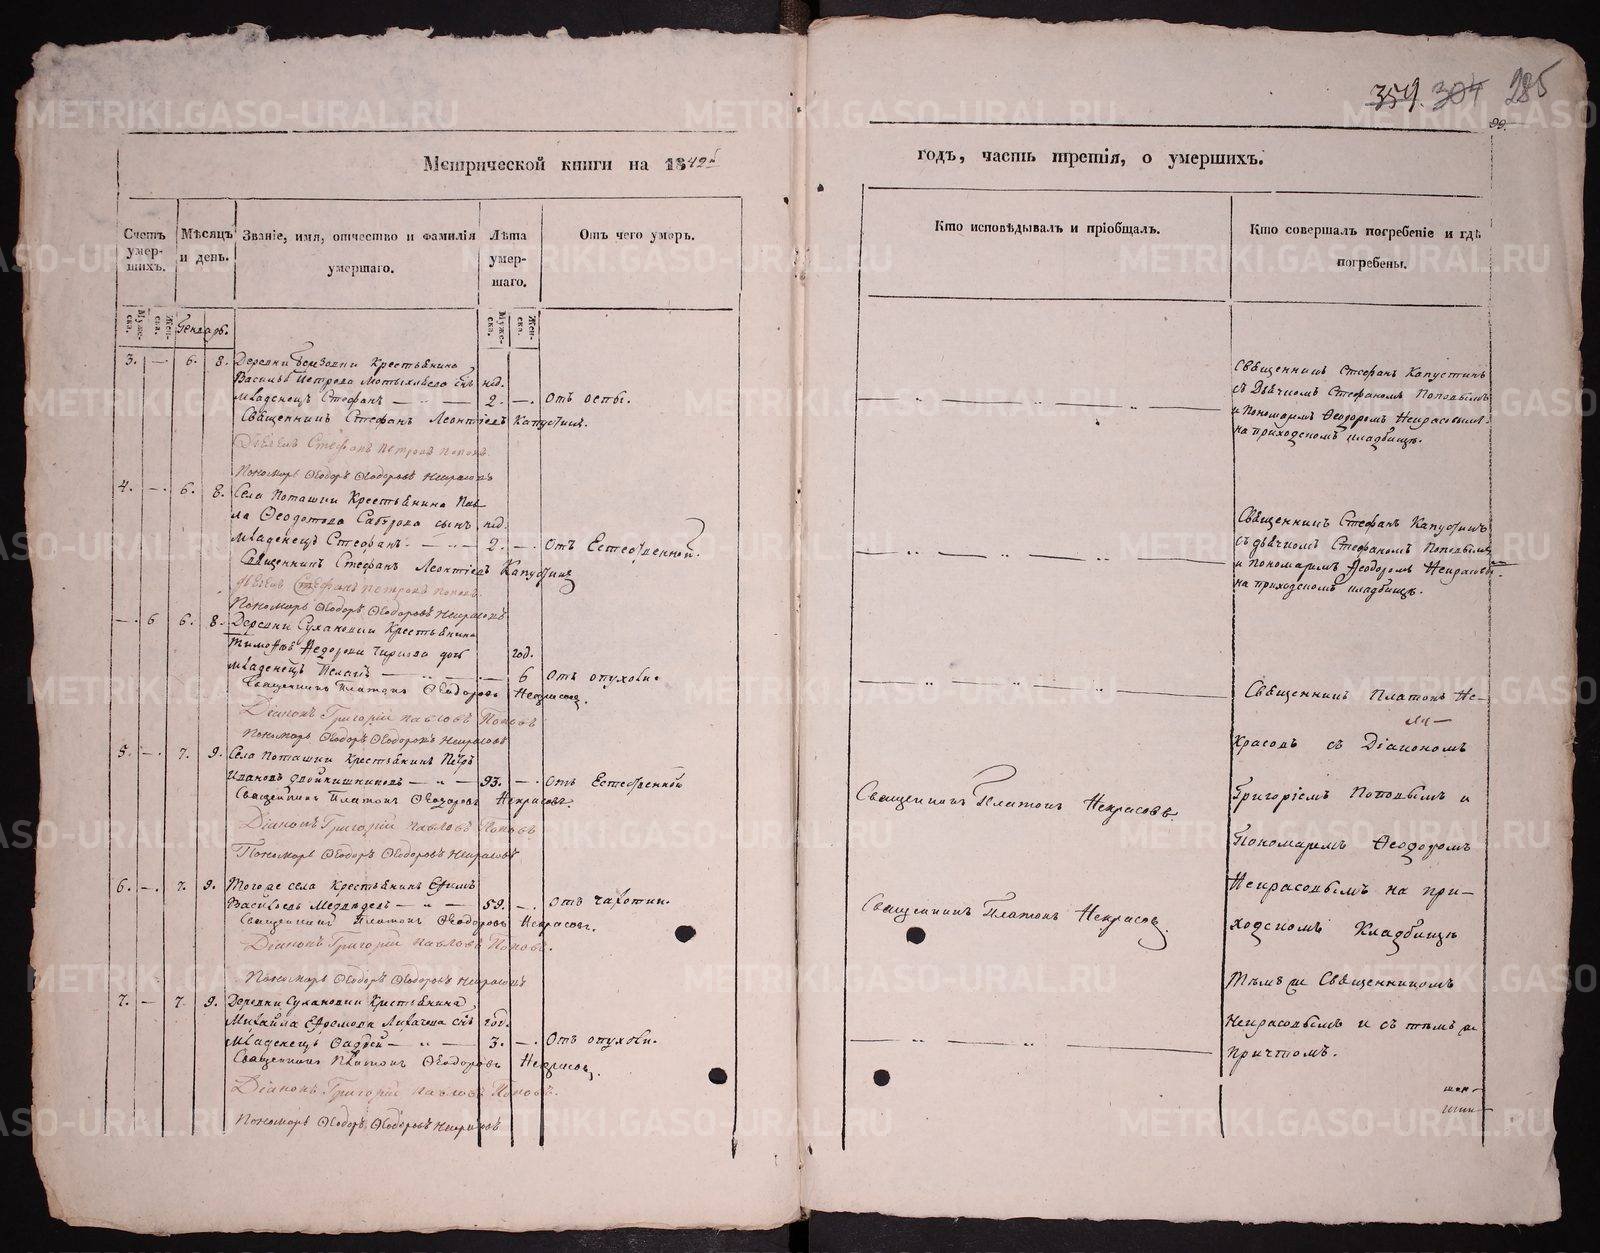 359. 304 285
99.
Метрической книги на 1842й
годъ, часть третія, о умершихъ.
Счетъ умер-шихъ.
Мѣсяцъ и день.
Званіе, имя, отчество и фамилія умершаго.
Лѣта умер-шаго.
Отъ чего умеръ.
Кто исповѣдывалъ и пріобщалъ.
Кто совершалъ погребеніе и гдѣ погребены.
Муже-ска. Жен-ска. Генварь. Муже-ска. Жен-ска.
3. — 6. 8. Деревни Крестьянина
Василья Петрова сынъ нед.
младенецъ Стефанъ — „ — 2. — отъ оспы.
Священникъ Стефанъ Леонтіевъ Капустинъ.
Дьячекъ Стефанъ Петровъ Поповъ
Пономарь Ѳеодоръ Ѳеодоровъ Некрасовъ
Священникъ Стефанъ Капустинъ
съ Дьячкомъ Стефаномъ Поповымъ
и Пономаремъ Ѳеодоромъ Некрасовымъ
на приходскомъ кладбищѣ.
4. — 6. 8. Села Поташки Крестьянина Пав-
ла Ѳеодотова Сабурова сынъ нед.
младенецъ Стефанъ — „ — 2. — отъ Естественной.
Священникъ Стефанъ Леонтіевъ Капустинъ
Дьячекъ Стефанъ Петровъ Поповъ
Пономарь Ѳеодоръ Ѳеодоровъ Некрасовъ
Священникъ Стефанъ Капустинъ
съ дьячкомъ Стефаномъ Поповымъ
и пономаремъ Ѳеодоромъ Некрасовы
на приходскомъ кладбищѣ.
— 6 6. 8. Деревни Сухановки Крестьянина
Тимоѳея дочь год.
младенецъ — 6 отъ опухоли.
Священникъ Платонъ Ѳеодоровъ Некрасовъ.
Діаконъ Григорій Павловъ Поповъ
Пономарь Ѳеодоръ Ѳеодоровъ Некрасовъ
5. — 7. 9. Села Поташки Крестьянинъ Петръ
Ивановъ — „ — 93. — отъ Естественной
Священникъ Платонъ Ѳеодоровъ Некрасовъ.
Діаконъ Григорій Павловъ Поповъ
Пономарь Ѳеодоръ Ѳеодоровъ Некрасовъ
Священникъ Платонъ Некрасовъ.
6. — 7. 9. Того же села Крестьянинъ Ефимъ
Васильевъ Медвѣдевъ — „ — 59. — отъ чахотки.
Священникъ Платонъ Ѳеодоровъ Некрасовъ.
Діаконъ Григорій Павловъ Поповъ.
Пономарь Ѳеодоръ Ѳеодоровъ Некрасовъ
Священникъ Платонъ Некрасовъ.
7. — 7. 9. Деревни Сухановки Крестьянина
Михайла Ефремова Лихачева сынъ год.
младенецъ Фаддей — „ — 3. — отъ опухоли.
Священникъ Платонъ Ѳеодоровъ Некрасовъ.
Діаконъ Григорій Павловъ Поповъ.
Пономарь Ѳеодоръ Ѳеодоровъ Некрасовъ
Священникъ Платонъ Не-
красовъ съ Діакономъ
Григоріемъ Поповымъ и
Пономаремъ Ѳеодоромъ
Некрасовымъ на при-
ходскомъ Кладбищѣ
Тѣмъ же Священникомъ
Некрасовымъ и съ тѣмъ же
причтомъ.
METRIKI.GASO-URAL.RU